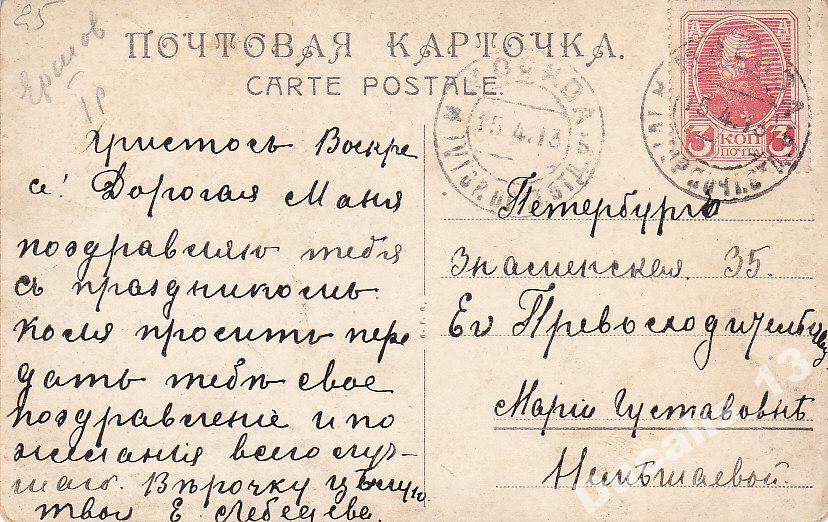 85
Ершов
1р
ПОЧТОВАЯ КАРТОЧКА.
CARTE POSTALE.
15.4.13
15.4.13
3 КОП 3
ПОЧТ
Христосъ Воскре
се! Дорогая Маня
поздравляю тебя
съ праздникомъ.
Коля проситъ пере
дать тебѣ свое
поздравленіе и по
желанія всего луч-
шаго. Вѣрочку цѣлую.
твоя Е. Лебедева.
Петербургъ
Знаменская. 35.
Ея Превосходительству
Маріи Густавовнѣ
Немѣшаевой.